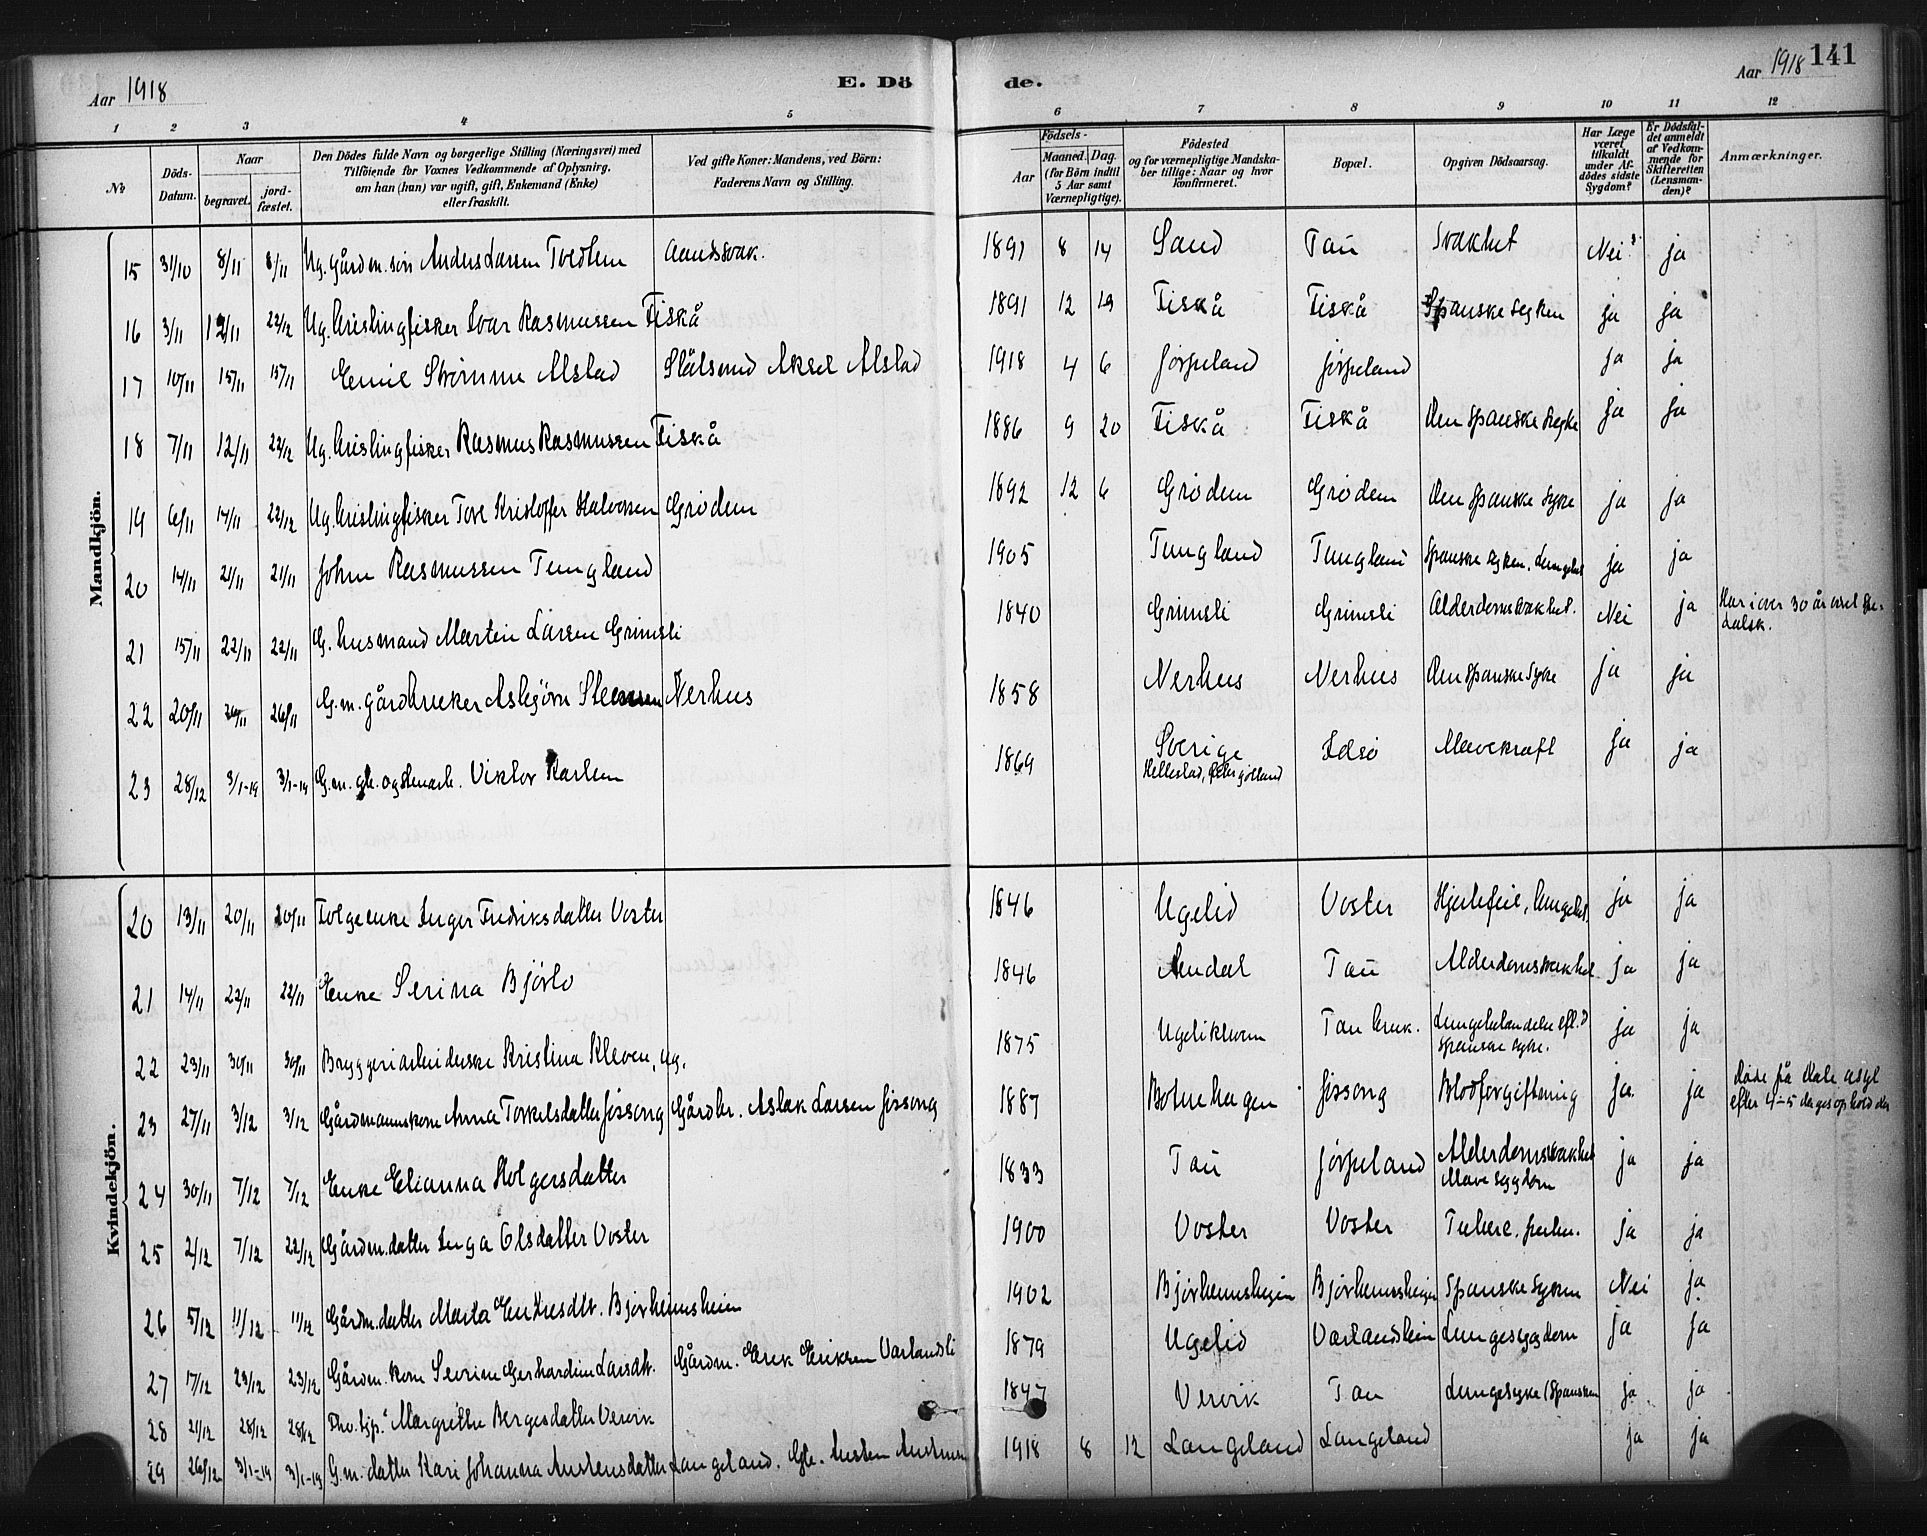 Aar 1918 E. Dö de. Aar 1918 141
1 2 3 4 5 6 7 8 9 10 11 12
No
Döds-Datum.
Naar begravet. jord-fæstet.
Den Dödes fulde Navn og borgerlige Stilling (Næringsvei) med Tilföiende for Voxnes Vedkommende af Oplysning, om han (hun) var ugift, gift, Enkemand (Enke) eller fraskilt.
Ved gifte Koner: Mandens, ved Börn: Faderens Navn og Stilling.
Födsels-
Aar
Maaned. Dag. (for Börn indtil 5 Aar samt Værnepligtige).
Födested og for værnepligtige Mandskaber tillige: Naar og hvor konfirmeret.
Bopæl.
Opgiven Dödsaarsag.
Har Læge været tilkaldt under Afdödes sidste Sygdom?
Er Dödsfaldet anmeldt af Vedkommende for Skifteretten (Lensmanden)?
Anmærkninger.
Mandkjön.
15 31/10 8/11 8/11 Ug. gårdm. søn Anders Larsen Tvedtem Aandssvak. 1891 8 14 Sand Tau Svakhet Nei ja
16 3/11 12/11 22/12 Ug. brislingfisker Ivar Rasmussen Fiskå 1891 12 19 Fiskå Fiskå Spanske syken ja ja
17 10/11 15/11 15/11 Emil Strømme Alstad Stålsmed Aksel Alstad 1918 4 6 Jørpeland Jørpeland ja ja
18 7/11 12/11 22/12 Ug. brislingfisker Rasmus Rasmussen Fiskå 1886 9 20 Fiskå Fiskå Den spanske syke ja ja
19 6/11 14/11 22/12 Ug. brislingfisker Tore Kristoffer Halvorsen Grødem 1892 12 6 Grødem Grødem Den spanske syke ja ja
20 14/11 21/11 21/11 John Rasmussen Tungland 1905 Tungland Tungland Spanske syken, ja ja
21 15/11 22/11 22/11 G. husmand Martin Larsen Grimsli 1840 Grimsli Grimsli Alderdomssvakhet. Nei ja Har i over 30 år været spedalsk.
22 20/11 26/11 26/11 G.m. gårdbruker Asbjørn Steensen Nerhus 1858 Nerhus Nerhus Den spanske syke ja ja
23 28/12 3/1-19 3/1-19 G.m. Viktor Karlsen 1869 Sverige Idsø Mavekræft ja ja
Hellestad,
Kvindekjön.
20 13/11 20/11 20/11 Inger Fredriksdatter Voster 1846 Ugelid Voster Hjertefeil, ja ja
21 14/11 22/11 22/11 Enke Serina Bjørlo 1846 Tau Alderdomssvakhet ja ja
22 23/11 30/11 30/11 Bryggeriarbeiderske Kristina Kleven, ug. 1875 Ugelikleven Tau bruk. Lungebetændelse eft. spanske syke. ja ja
23 27/11 3/12 3/12 Gårdmannskone Anna Torkelsdatter Jøssang Gårdbr. Aslak Larsen Jøssang 1887 Botnehagen Jøssang Blodforgiftning ja ja Døde på Dale asyl efter 4-5 dages ophold der
24 30/11 7/12 7/12 Enke Elianna Holgersdatter 1833 Tau Jørpeland Alderdomssvakhet Mavesygdom ja ja
25 2/12 7/12 22/12 Gårdm. datter Inga Olsdatter Voster 1900 Voster Voster ja ja
26 5/12 11/12 11/12 Gårdm. datter Marta Bjørheimsheien 1902 Bjørheimsheien Bjørheimsheien Spanske syken Nei ja
27 17/12 23/12 23/12 Gårdm. kone Serine Gerhardine Larsdtr. Gårdm. Erik Eriksen Varlandsli 1879 Ugelid Varlandsheien Lungesygdom ja ja
28 21/12 28/12 28/12 Margrethe Bergesdatter Vervik 1847 Vervik Tau Lungesyke (Spansken ja ja
29 26/12 3/1-19 3/1-19 G.m. datter Kari Johanna Austensdatter Langeland. Gbr. Austen 1918 8 12 Langeland Langeland ja ja